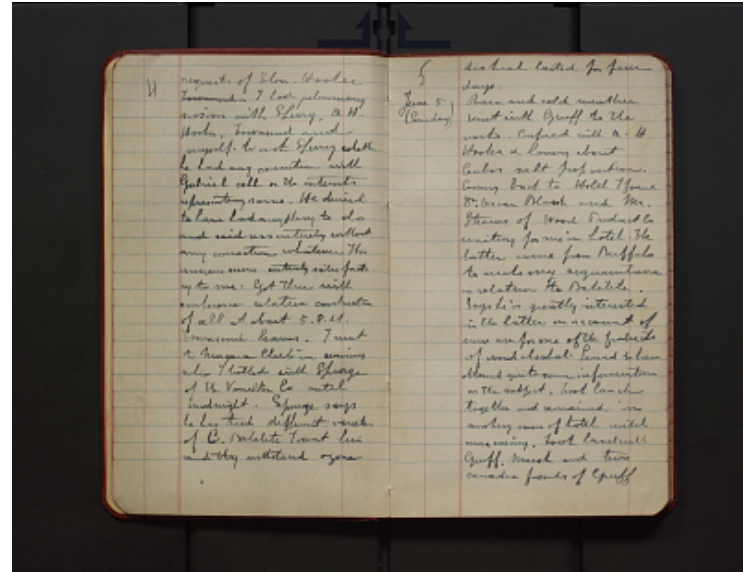 4
requests of Elon Hooker
Townsend I had preliminary
session with Spurge, A. H.
Hooker, Townsend and
myself to
he had any connection with
Gabriel cell or the interests
representing same. He denied
to have had anything to do
and said was entirely without
any connection whatever. His
answers were entirely satisfact
ory to me. Got then
conference relative construction
of cell. At about 5. P.M.
Townsend leaves. I went
to Niagara Club in evening
where I talked with Spurge
of the Co until
midnight. Spurge says
he has tried different varieties
of C. Bakelite I sent him
and they withstand ozone
5
lasted for four
days.
June 5
(Sunday)
Rain and cold weather
went with Gruff to the
works. Conferred with A. H
Hooker & about
salt proposition.
Coming back to Hotel I found
Dr. Oscar and Mr.
of Wood Product Co
waiting for me in hotel. The
latter came from Buffalo
to make my acquaintance
in relation to Bakelite.
Says he is greatly interested
in the latter on account of
for one of the products
of wood alcohol. Seemed to have
obtained quite some information
on the subject. Took lunch
together and remained in
smoking room of hotel until
evening. Took lunch with
Gruff, and two
canadian friends of Gruff